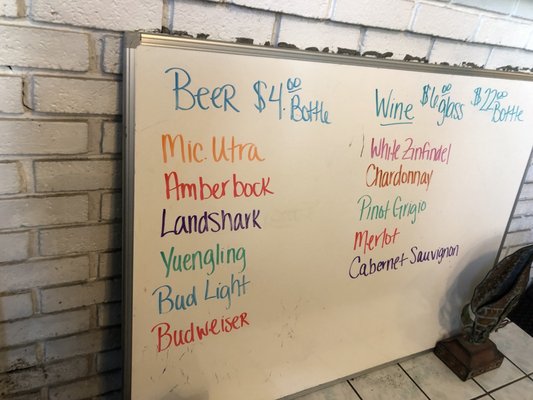 Beer $4.00 Bottle
Mic. Utra
Amberbock
Landshark
Yuengling
Bud Light
Budweiser
Wine $6.00 glass $22.00 Bottle
White Zinfindel
Chardonnay
Pinot Grigio
Merlot
Cabernet Sauvignon